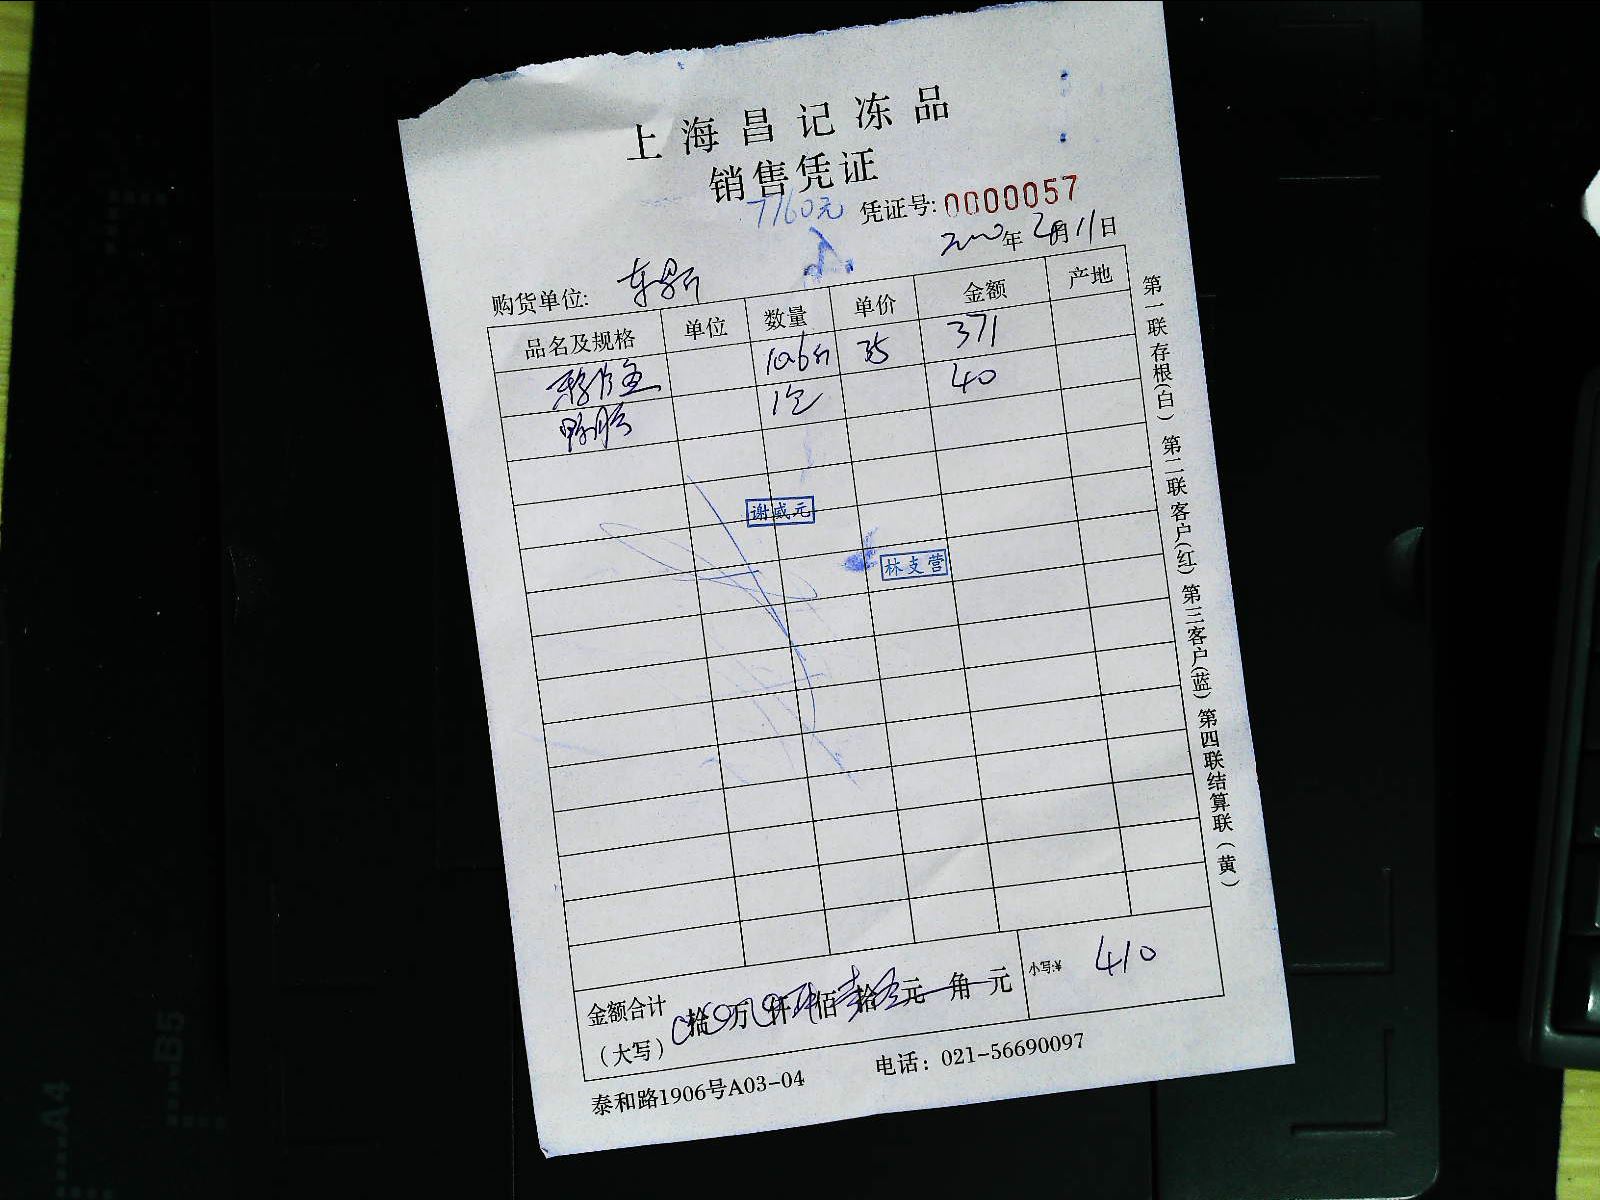 上海昌记冻品
销售凭证
7160元
凭证号:0000057
年2月11日
购货单位:
品名及规格 单位 数量 单价 金额 产地
10.6斤 35 371
1包 40
谢威元
林支营
金额合计
(大写)
拾 万 仟 佰 拾 元 角 元
小写:¥ 410
泰和路1906号A03-04 电话：021-56690097
第一联存根(白) 第二联客户(红) 第三客户(蓝) 第四联结算联(黄)